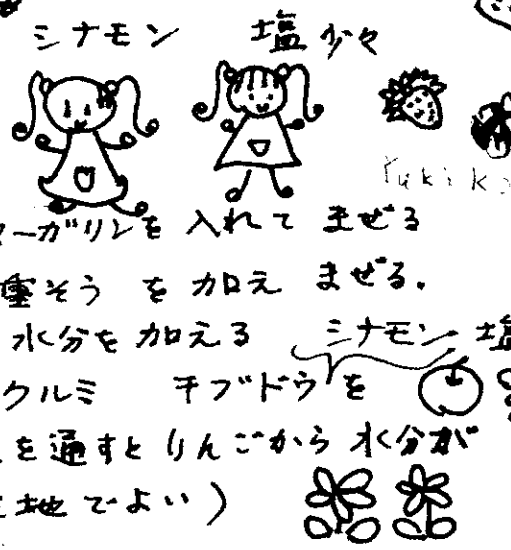 シナモン 塩少々
Yukiko
ーガリンを入れてまぜる
重そうを加えまぜる.
水分を加える シナモン 塩
クルミ 干ブドウを
を通すとりんごから水分が
地でよい)